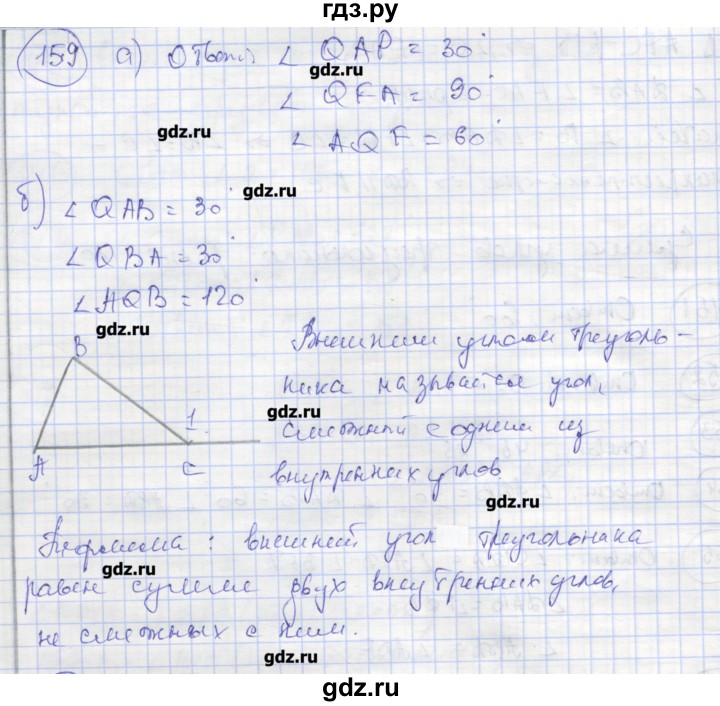 гдз.ру
159 а) Ответ: ∠ QAP = 30°
gdz.ru
∠ QFA = 90°
gdz.ru
∠ AQF = 60°
б) ∠ QAB = 30°
gdz.ru
∠ QBA = 30°
∠ AQB = 120°
gdz.ru
B
Внешним углом треуголь-
ника называется угол,
gdz.ru
1
смежный с одним из
A
C
внутренних углов
gdz.ru
Теорема: внешний угол треугольника
gdz.ru
равен сумме двух внутренних углов,
не смежных с ним.
gdz.ru
gdz.ru